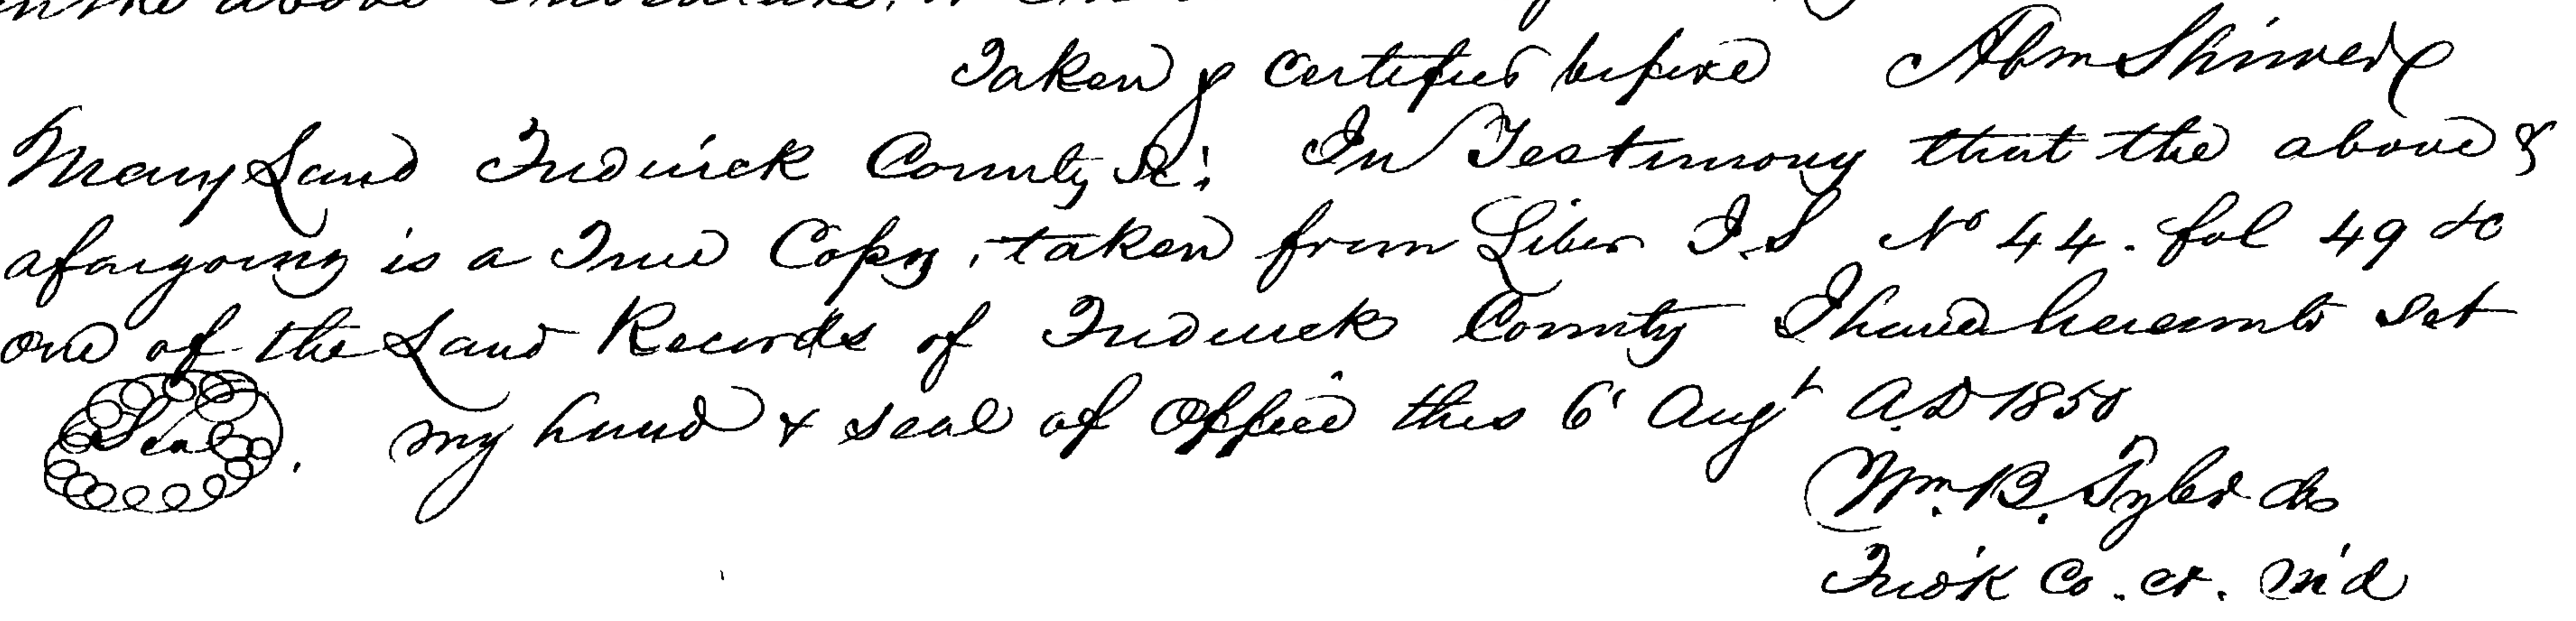 Taken & Certified before Abm Shriver
Mary Land Frederick County Sc: In Testimony that the above &
aforegoing is a True Copy, taken from Liber J.S No 44. fol 49 &c
one of the Land Records of Frederick County I have hereunto set
Seal. my hand & seal of Office this 6' Augt A.D 1850
Wm. B. Tyler clk
Fredk Co. ct. Md